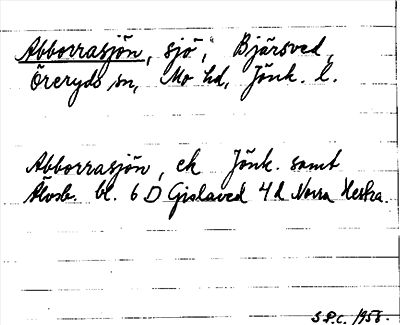 Abborrasjön, sjö, Bjärsved,
Öreryds sn, Mo hd, Jönk. l.
Abborrasjön, ek Jönk. samt
Älvsb. bl. 6 D Gislaved 4 d Norra Hestra.
S.P.C. 1958.